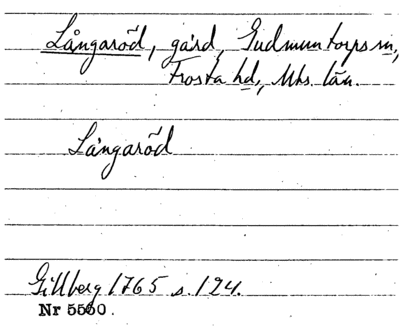 Långaröd, gård, Gudmuntorps sn,
Frosta hd, Mhs. län.
Långaröd
Gillberg 1765 s. 124.
Nr 5560.